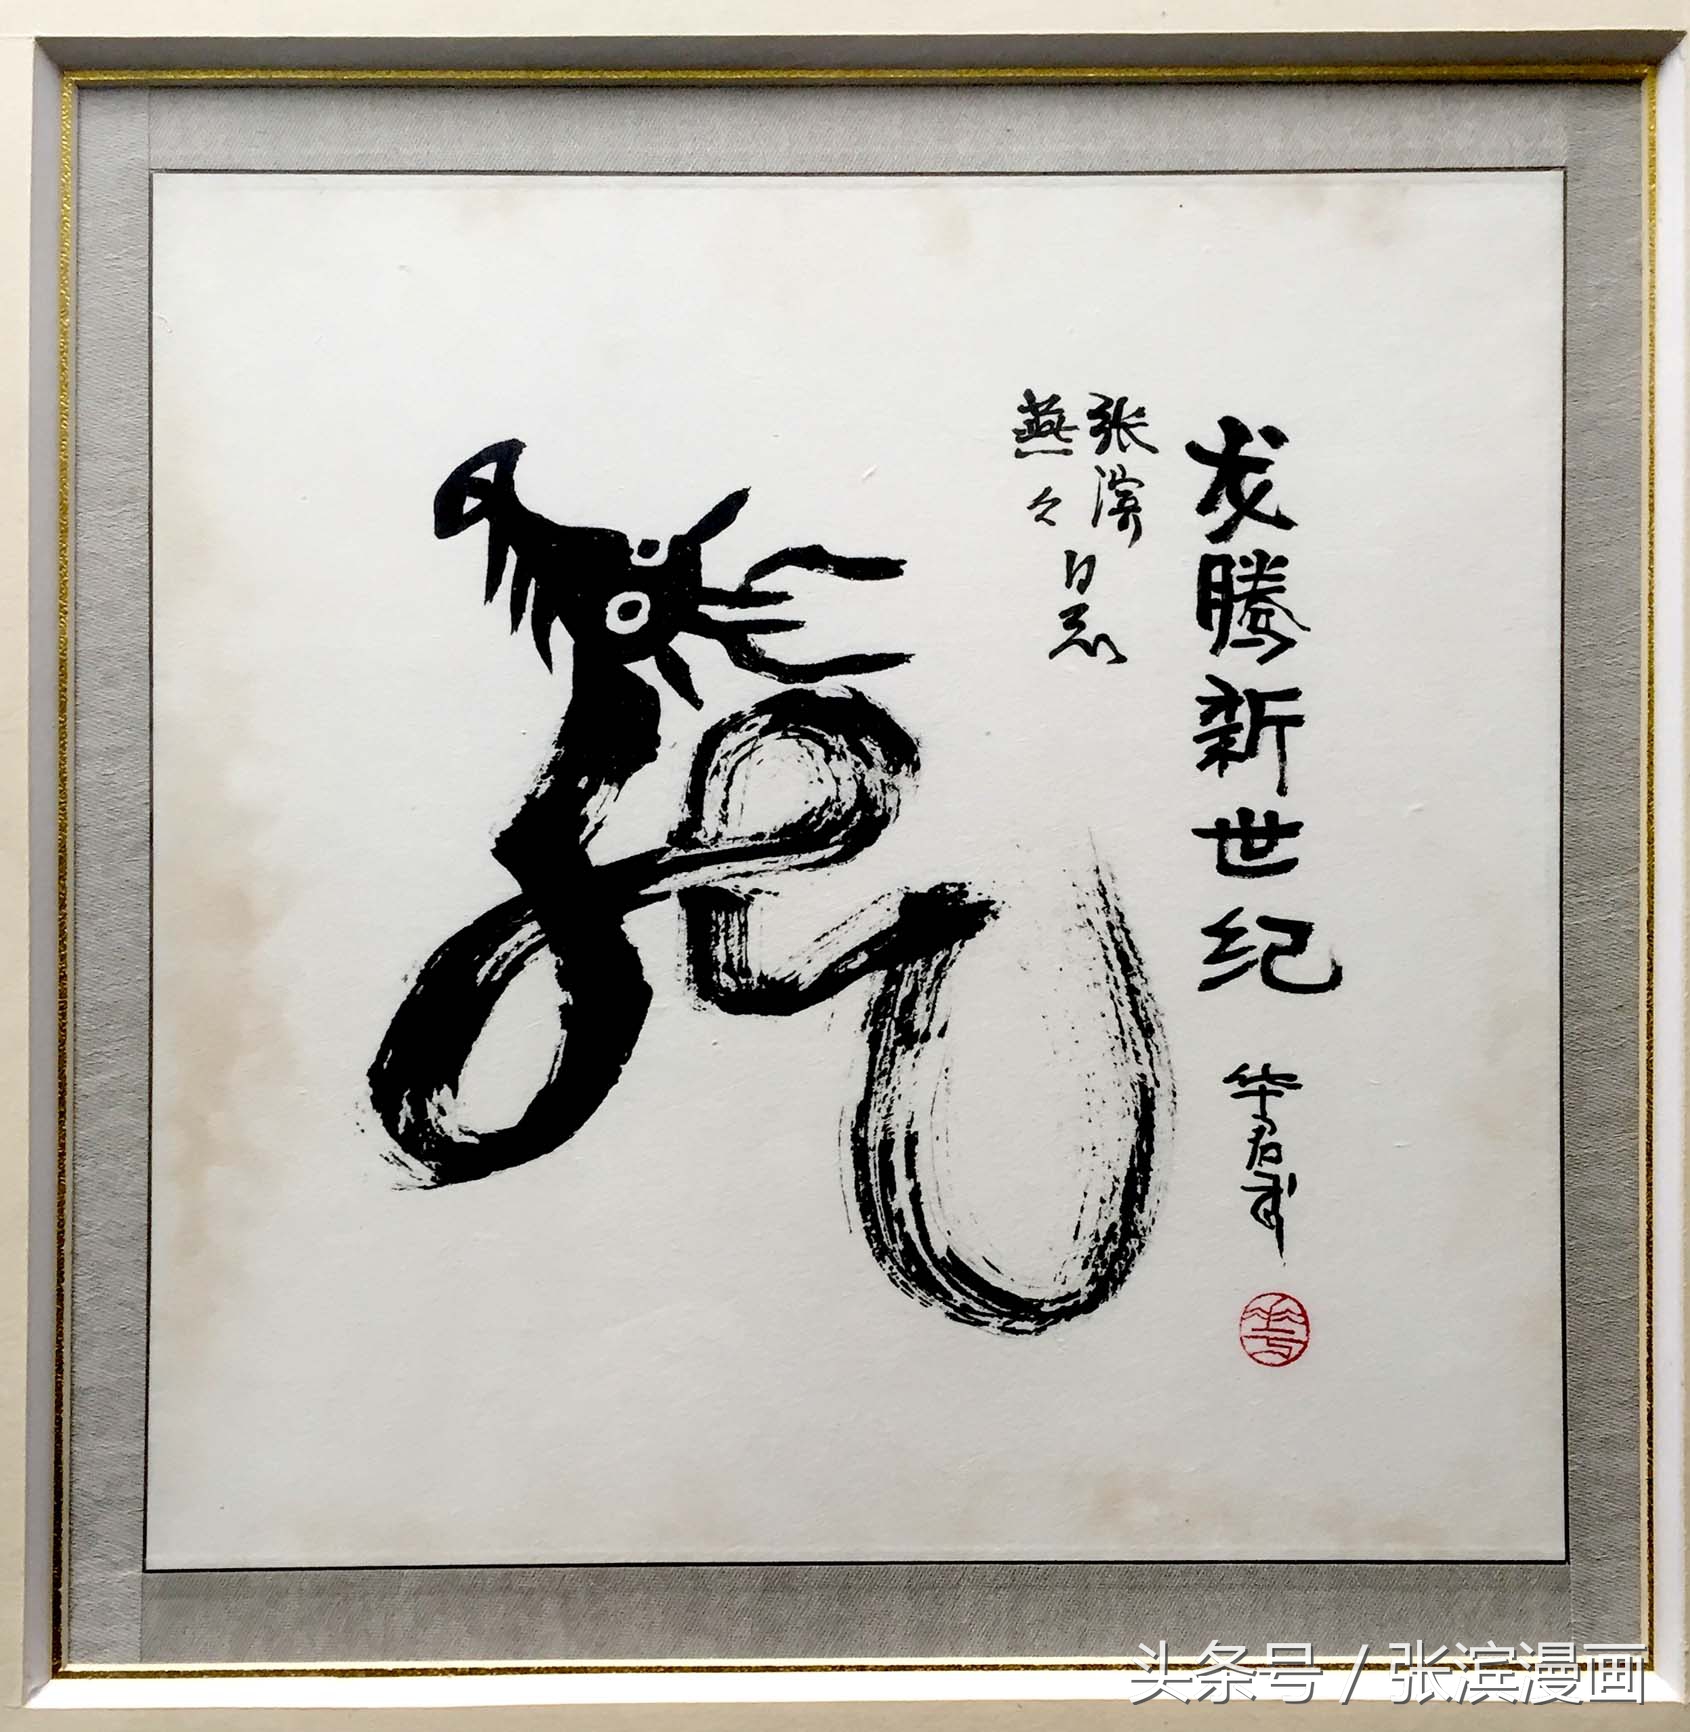 龙腾新世纪
华君武
张滨
燕々
头条号 / 张滨漫画